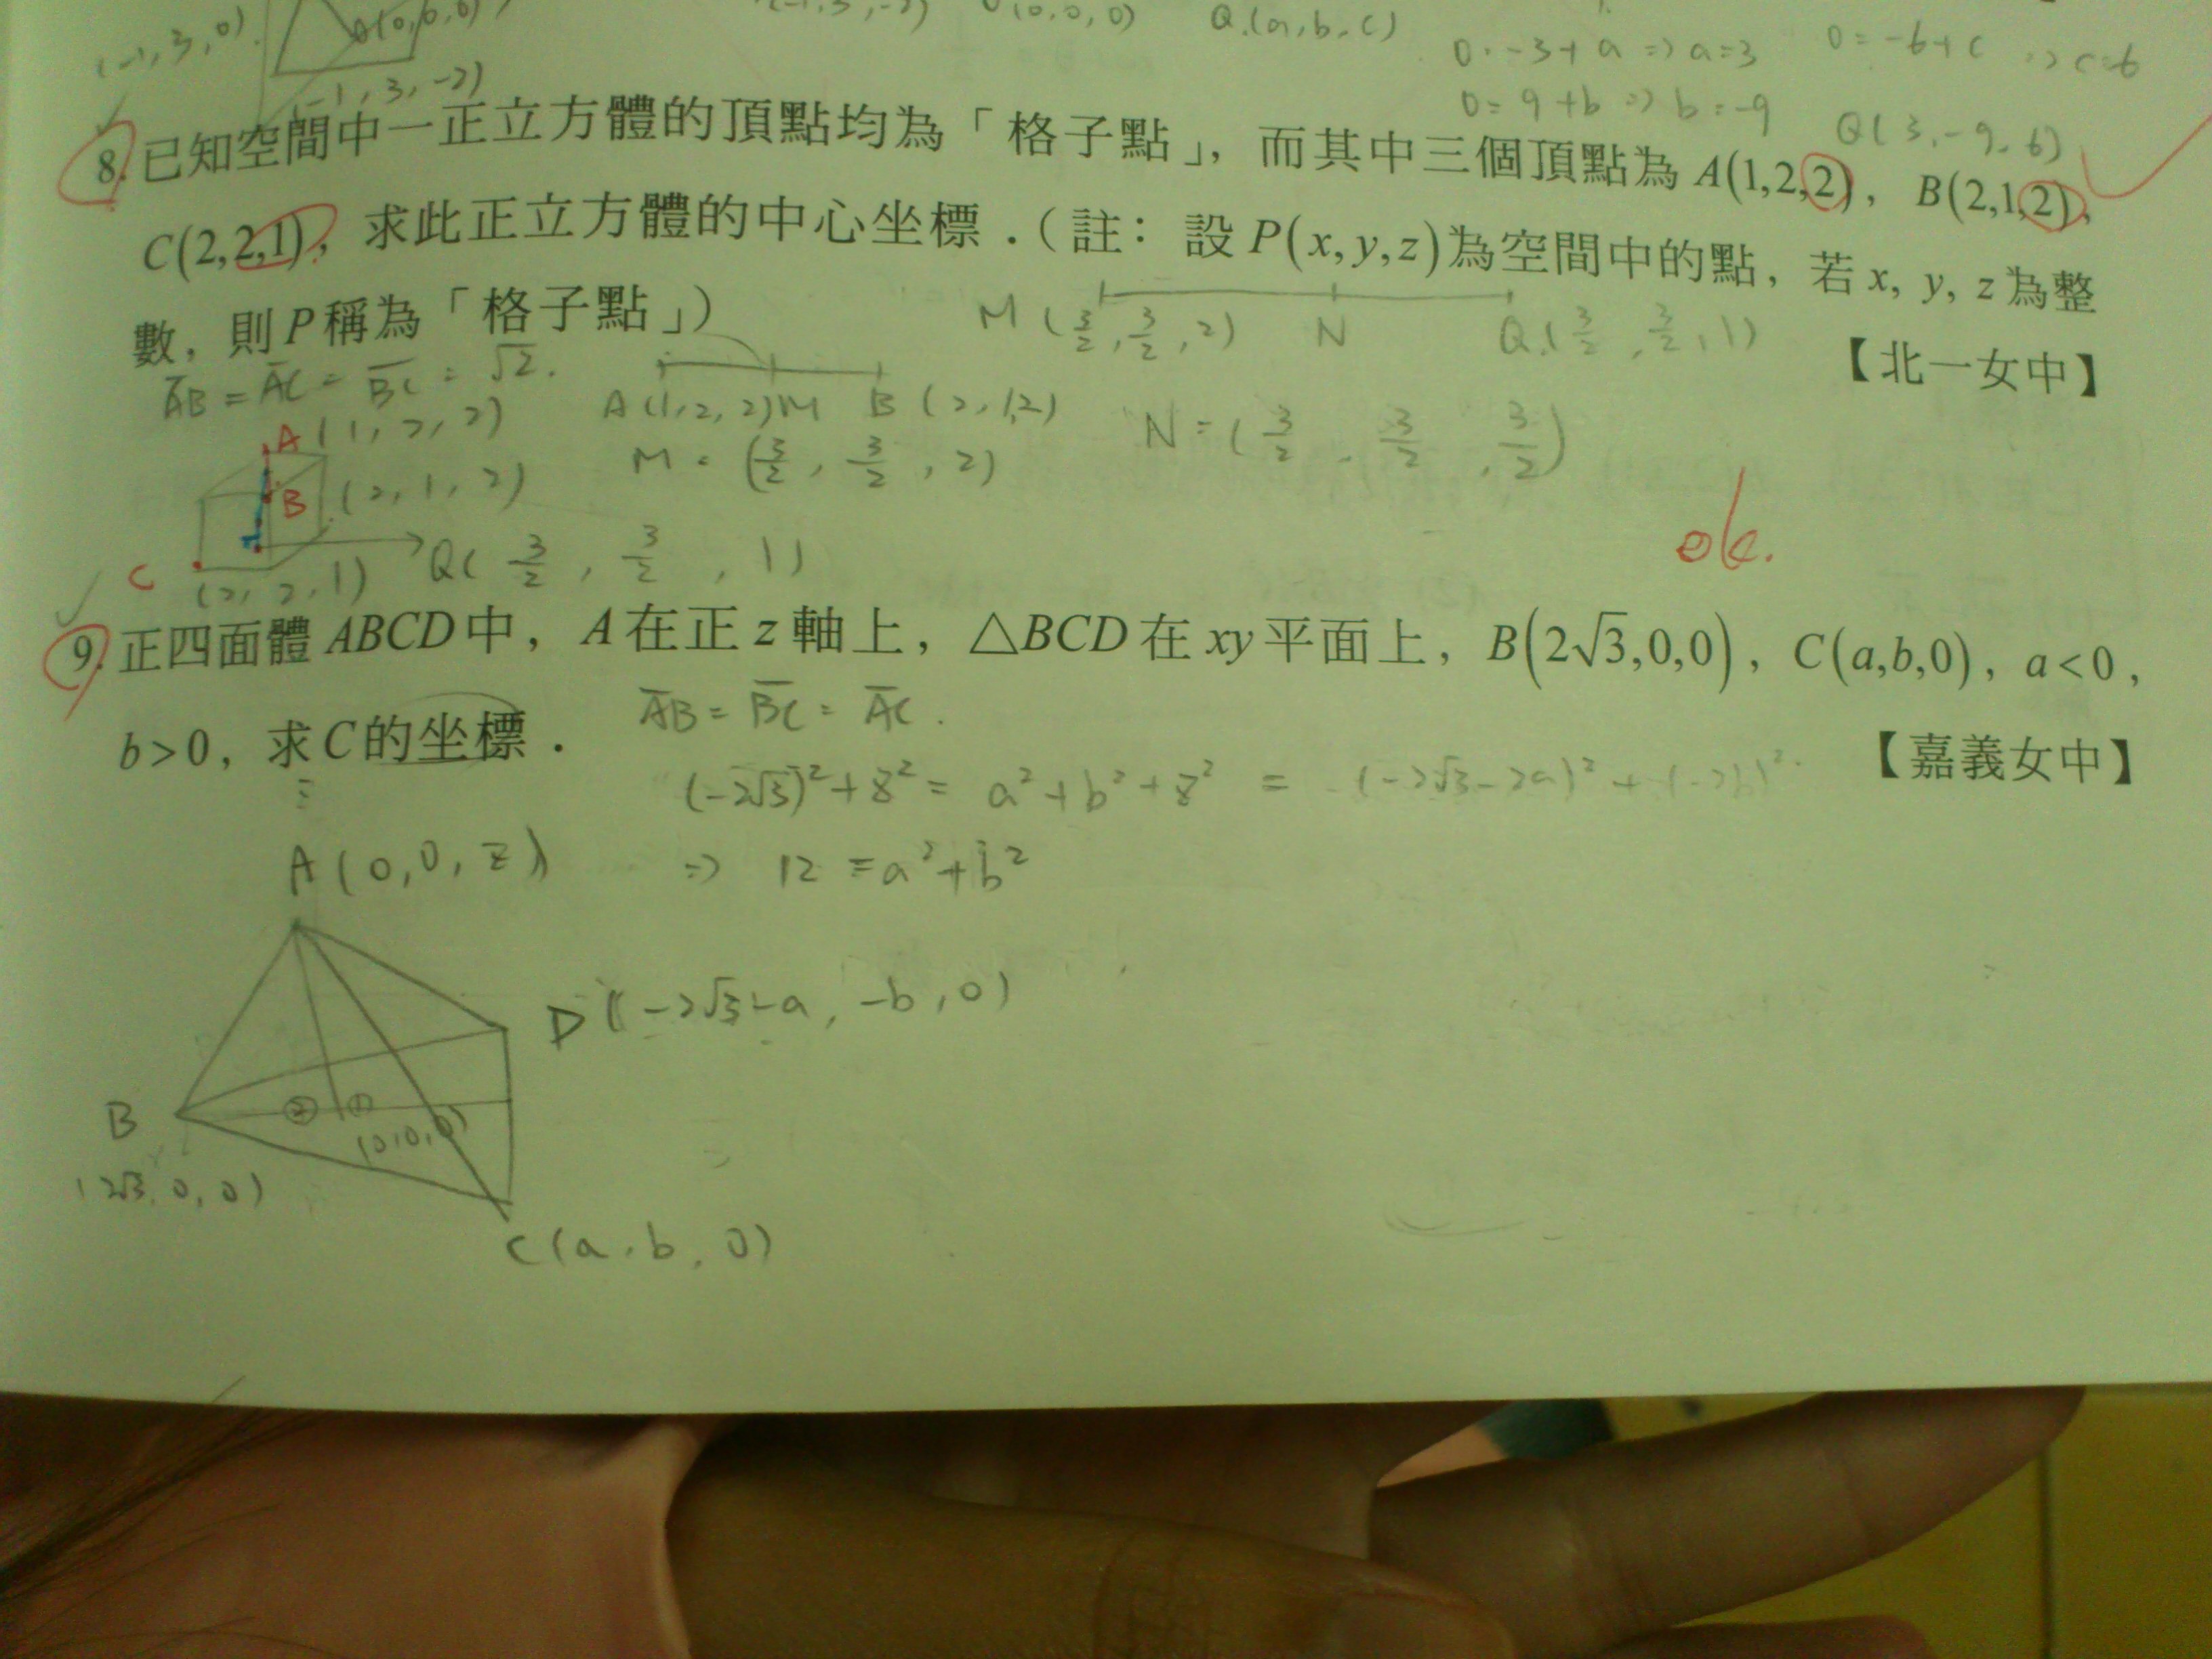 (-1,3,0)
A(0,0,0)
(-1,3,-2)
O(0,0,0)
Q(a,b,c)
0=-3+a ⇒ a=3
0=-6+c ⇒ c=6
0=9+b ⇒ b=-9
Q(3,-9,6)
(-1,3,-2)
8. 已知空間中一正立方體的頂點均為「格子點」, 而其中三個頂點為 A(1,2,2), B(2,1,2),
C(2,2,1), 求此正立方體的中心坐標.(註: 設P(x,y,z)為空間中的點, 若x, y, z為整
數, 則P稱為「格子點」)
【北一女中】
M(3/2,3/2,2) N Q(3/2,3/2,1)
AB=AC=BC=√2.
A(1,2,2) M B(2,1,2)
N=(3/2,3/2,3/2)
A(1,2,2)
M=(3/2,3/2,2)
B(2,1,2)
ok.
C(2,2,1)
Q(3/2,3/2,1)
9. 正四面體ABCD中, A在正z軸上, △BCD在xy平面上, B(2√3,0,0), C(a,b,0), a<0,
b>0, 求C的坐標.
【嘉義女中】
AB=BC=AC.
(-2√3)²+z²=a²+b²+z²=(-2√3-2a)²+(-2b)²
A(0,0,z)
⇒ 12=a²+b²
D(-2√3-a,-b,0)
B
② ①
(0,0,0)
(2√3,0,0)
C(a,b,0)